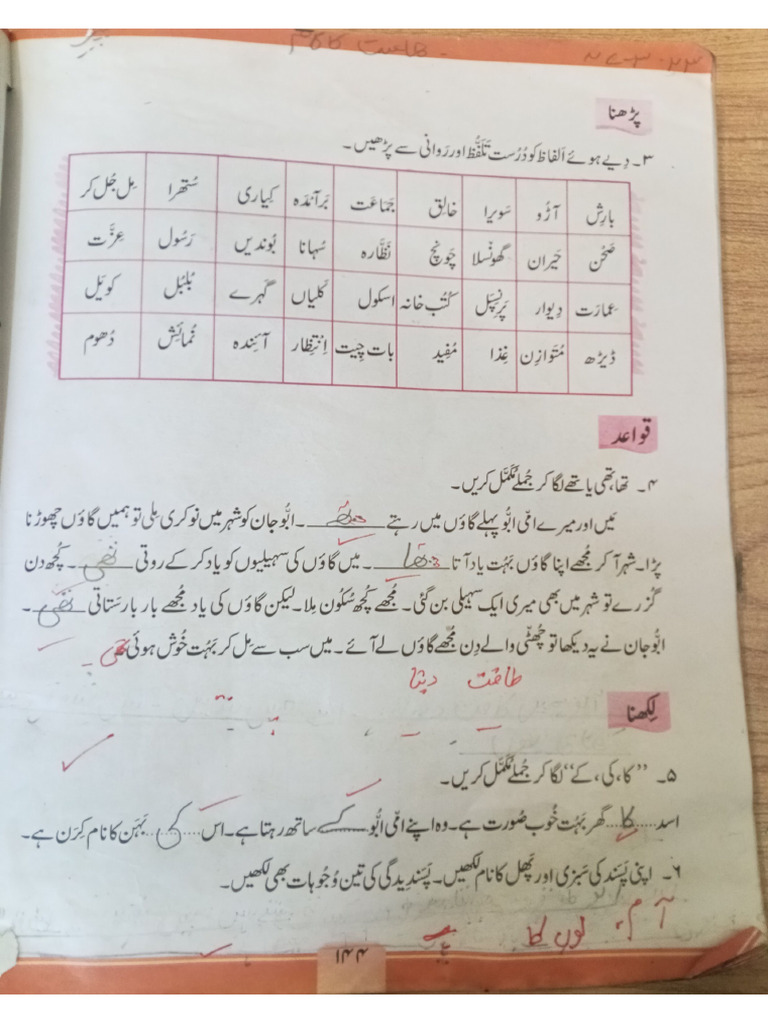 ۲۳-۳-۲۷
پڑھنا
۳۔ دِیے ہوئے اَلفاظ کو دُرُست تَلَفُّظ اور رَوانی سے پڑھیں۔
بارِش آڑُو سَویرا خالِق جَماعَت بَرآنْدَہ کِیاری سُتھرا مِل جُل کر
صَحْن حَیران گھونْسلا چَونْچ نَظَّارہ سُہانا بُوندیں رَسُول عِزَّت
عِمارَت دِیوار پَرِنْسِپَل کُتُب خانہ اسکول کَلِیاں گَہرے بُلبُل کویَل
ڈیڑھ مُتَوازِن غِذا مُفِید بات چِیت اِنْتِظار آئِندہ نُمائِش دُھوم
قواعد
۴۔ تھا، تھی یا تھے لگا کر جُملے مُکمَّل کریں۔
مَیں اور میرے امّی ابُّو پہلے گاؤں میں رہتے تھے ۔ ابُّو جان کو شہر میں نوکری مِلی تو ہمیں گاؤں چھوڑنا
پڑا۔ شہر آ کر مُجھے اپنا گاؤں بَہُت یاد آتا تھا ۔ میں گاؤں کی سہیلیوں کو یاد کر کے روتی تھی ۔ کُچھ دن
گُزرے تو شہر میں بھی میری ایک سہیلی بن گئی۔ مُجھے کُچھ سُکُون مِلا۔ لیکن گاؤں کی یاد مُجھے بار بار سَتاتی تھی ۔
ابُّو جان نے یہ دیکھا تو چُھٹّی والے دِن مُجھے گاؤں لے آئے۔ میں سب سے مِل کر بَہُت خُوش ہوئی تھی ۔
طاقت دیتا
لِکھنا
۵۔ ”کا، کی، کے“ لگا کر جُملے مُکمَّل کریں۔
اسد کا گھر بَہُت خُوب صُورت ہے۔ وہ اپنے امّی ابُّو کے ساتھ رہتا ہے۔ اس کی بَہَن کا نام کِرَن ہے۔
۶۔ اپنی پَسَنْد کی سَبزی اور پَھل کا نام لکھیں۔ پَسَندِیدگی کی تین وُجُوہات بھی لکھیں۔
آم
۱۴۴